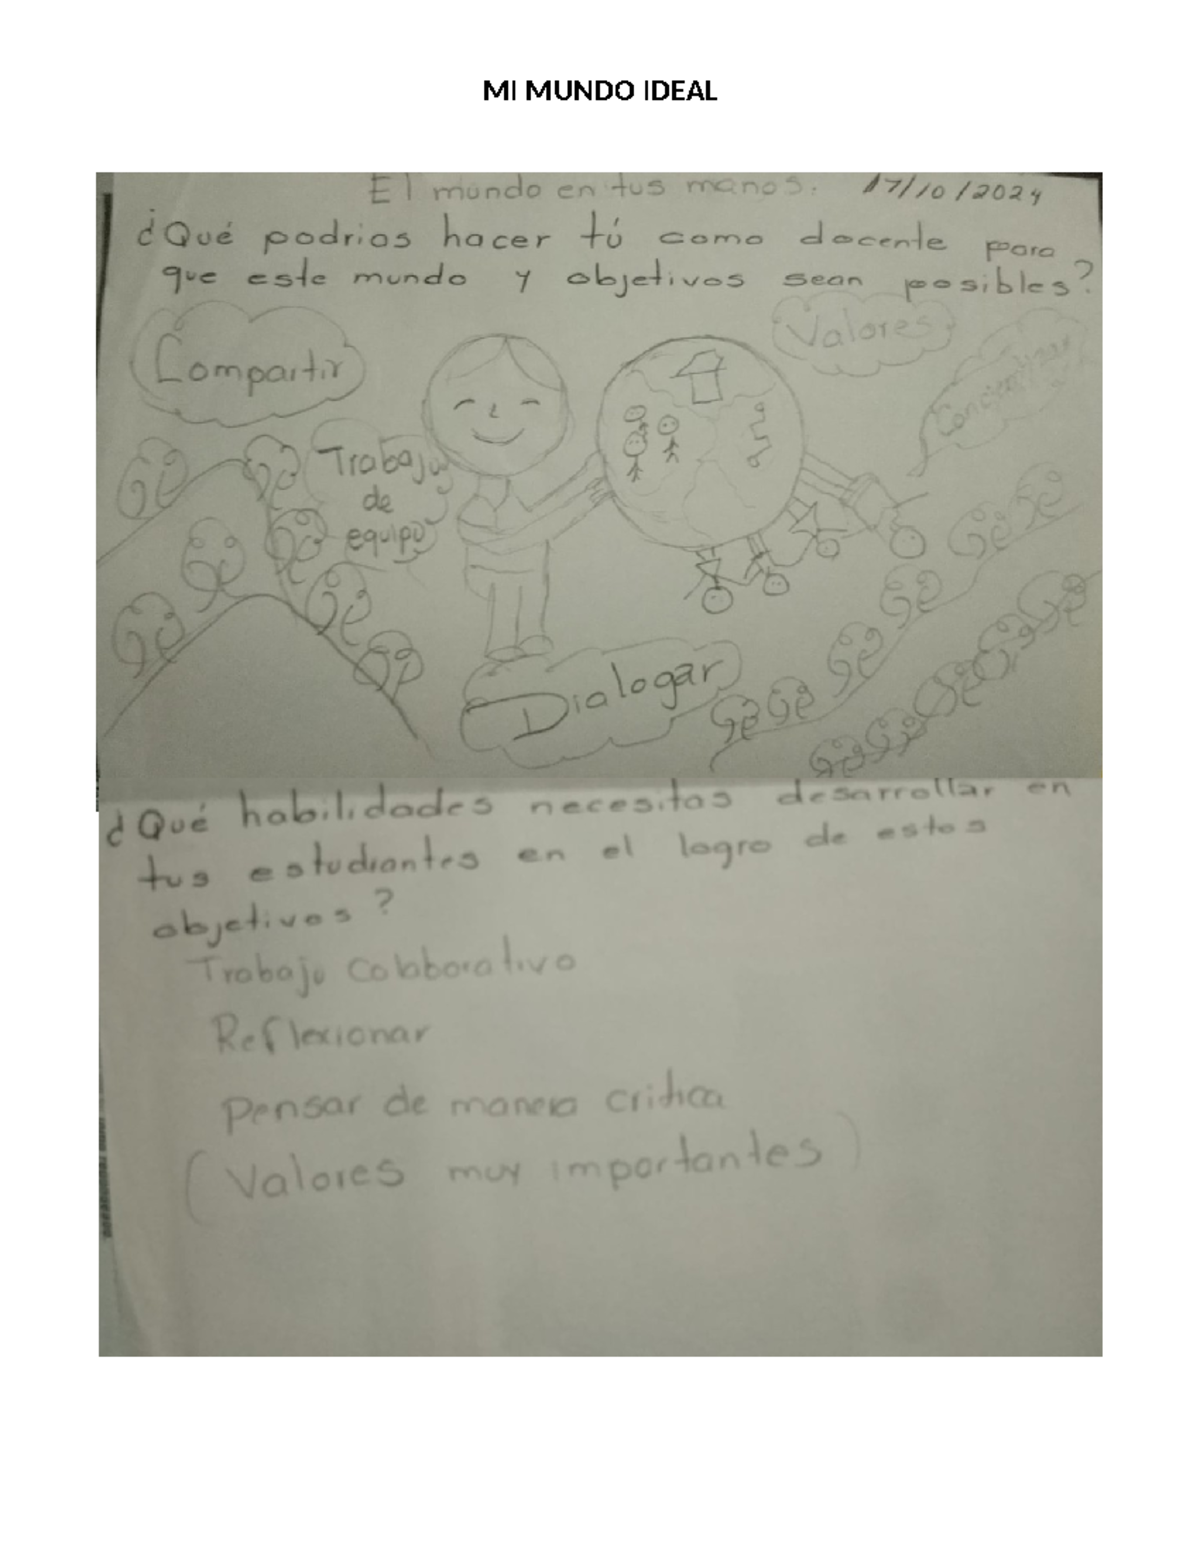 MI MUNDO IDEAL
El mundo en tus manos. 17/10/2024
¿Qué podrias hacer tú como docente para
que este mundo y objetivos sean posibles?
Compartir
Valores
Concientizar
Trabajo
de
equipo
Dialogar
¿Qué habilidades necesitas desarrollar en
tus estudiantes en el logro de estos
objetivos?
Trabajo Colaborativo
Reflexionar
Pensar de manera critica
(Valores muy importantes)